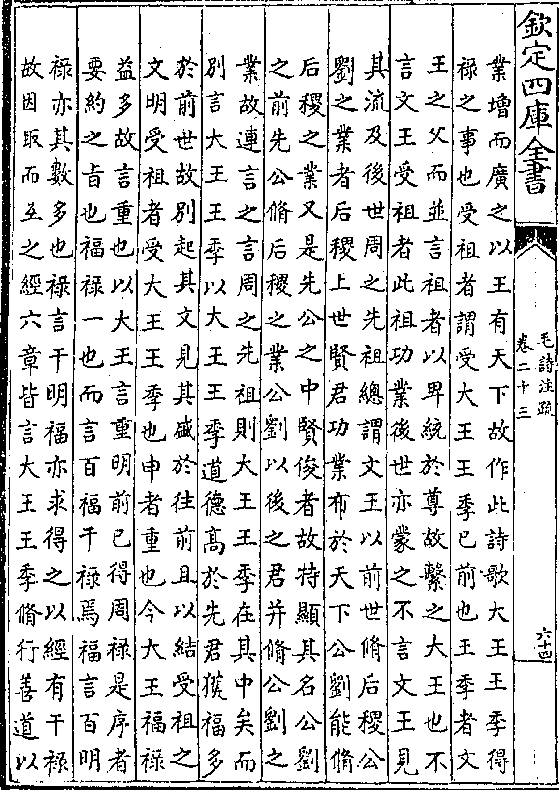 欽定四庫全書
毛詩注疏
卷二十三
六十四
業增而廣之以王有天下故作此詩歌大王王季得
祿之事也受祖者謂受大王王季已前也王季者文
王之父而並言祖者以卑統於尊故繫之大王也不
言文王受祖者此祖功業後世亦蒙之不言文王見
其流及後世周之先祖總謂文王以前世脩后稷公
劉之業者后稷上世賢君功業布於天下公劉能脩
后稷之業又是先公之中賢俊者故特顯其名公劉
之前先公脩后稷之業公劉以後之君并脩公劉之
業故連言之言周之先祖則大王王季在其中矣而
別言大王王季以大王王季道德高於先君獲福多
於前世故別起其文見其盛於往前且以結受祖之
文明受祖者受大王王季也申者重也今大王福祿
益多故言重也以大王言重明前已得周祿是序者
要約之旨也福祿一也而言百福干祿焉福言百明
祿亦其數多也祿言干明福亦求得之以經有干祿
故因取而互之經六章皆言大王王季脩行善道以